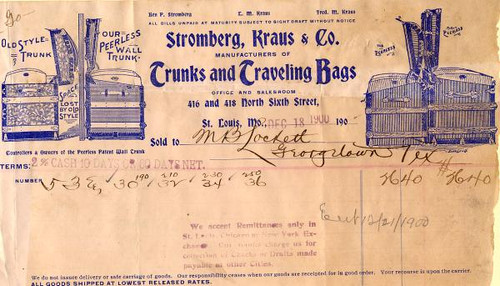 Ben F. Stromberg E. M. Kraus Fred. M. Kraus
ALL BILLS UNPAID AT MATURITY SUBJECT TO SIGHT DRAFT WITHOUT NOTICE
Stromberg, Kraus & Co.
MANUFACTURERS OF
Trunks and Traveling Bags
OFFICE AND SALESROOM
416 and 418 North Sixth Street,
St. Louis, Mo. DEC 18 1900 190
OLD STYLE TRUNK
OUR PEERLESS WALL TRUNK
SPACE LOST BY OLD STYLE
THE PEERLESS
Controllers & Owners of the Peerless Patent Wall Trunk
Sold to M B Lockett
Georgetown Tex
TERMS: 2% CASH 10 DAYS OR 60 DAYS NET.
NUMBER 53 E, 30 190 / 32 210 / 34 230 / 36 250 3640 $3640
We accept Remittances only in
St. Louis, Chicago or New York Ex-
change. Our banks charge us for
collection of Checks or Drafts made
payable at other Cities.
Ent 12/21/1900
We do not insure delivery or safe carriage of goods. Our responsibility ceases when goods are receipted for in good order. Your recourse is upon the carrier.
ALL GOODS SHIPPED AT LOWEST RELEASED RATES.